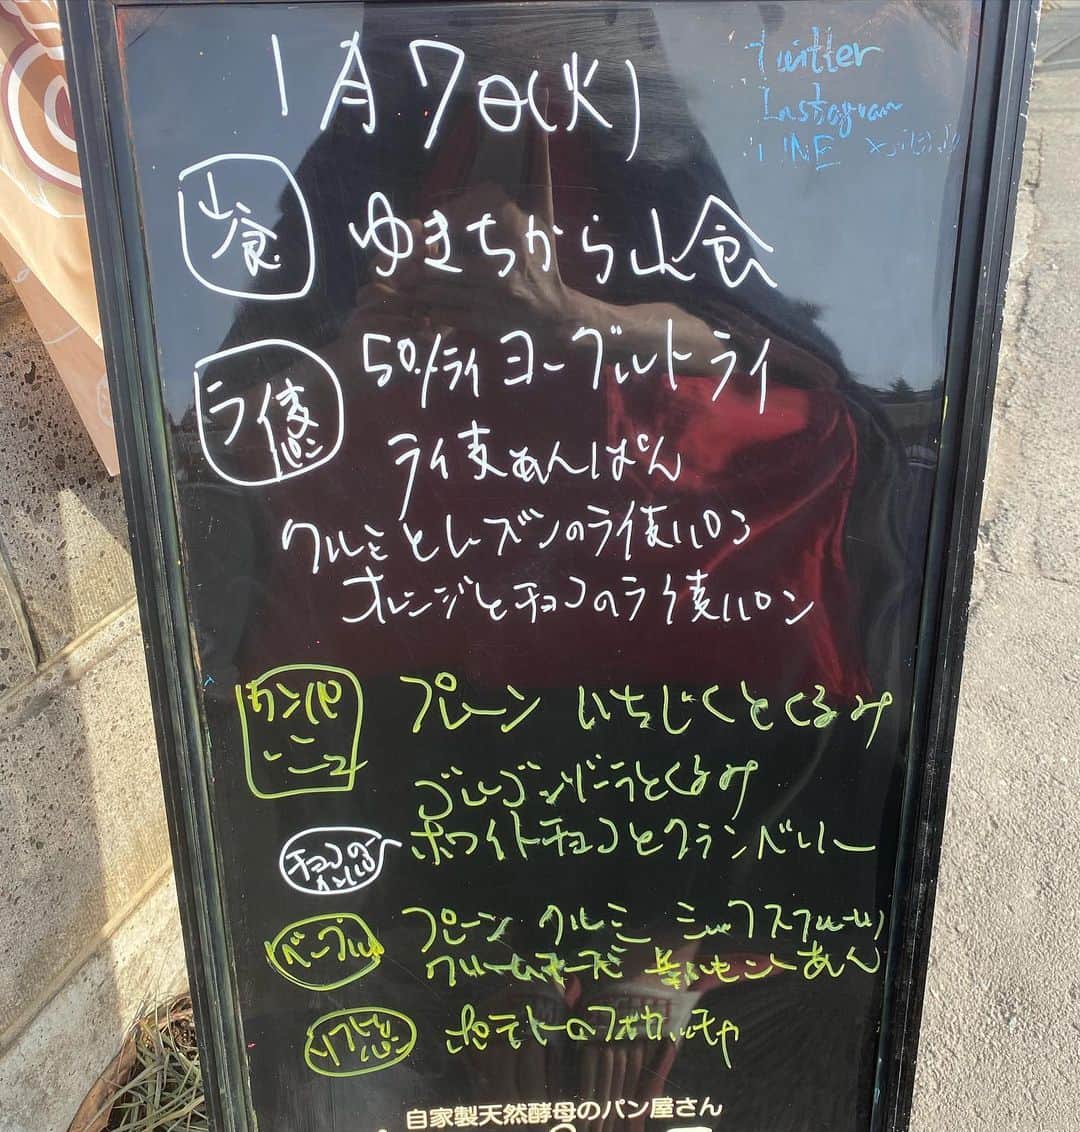 1月7日(火)
Twitter
Instagram
LINE
山食
ゆきちから山食
ライ麦パン
50%ライ ヨーグルトライ
ライ麦あんぱん
クルミとレーズンのライ麦パン
オレンジとチョコのライ麦パン
カンパーニュ
プレーン いちじくとくるみ
ゴルゴンゾーラとくるみ
チョコの
ホワイトチョコとクランベリー
ベーグル
プレーン クルミ ミックスフルーツ
クリームチーズ あん
ソフトパン
ポテトのフォカッチャ
自家製天然酵母のパン屋さん